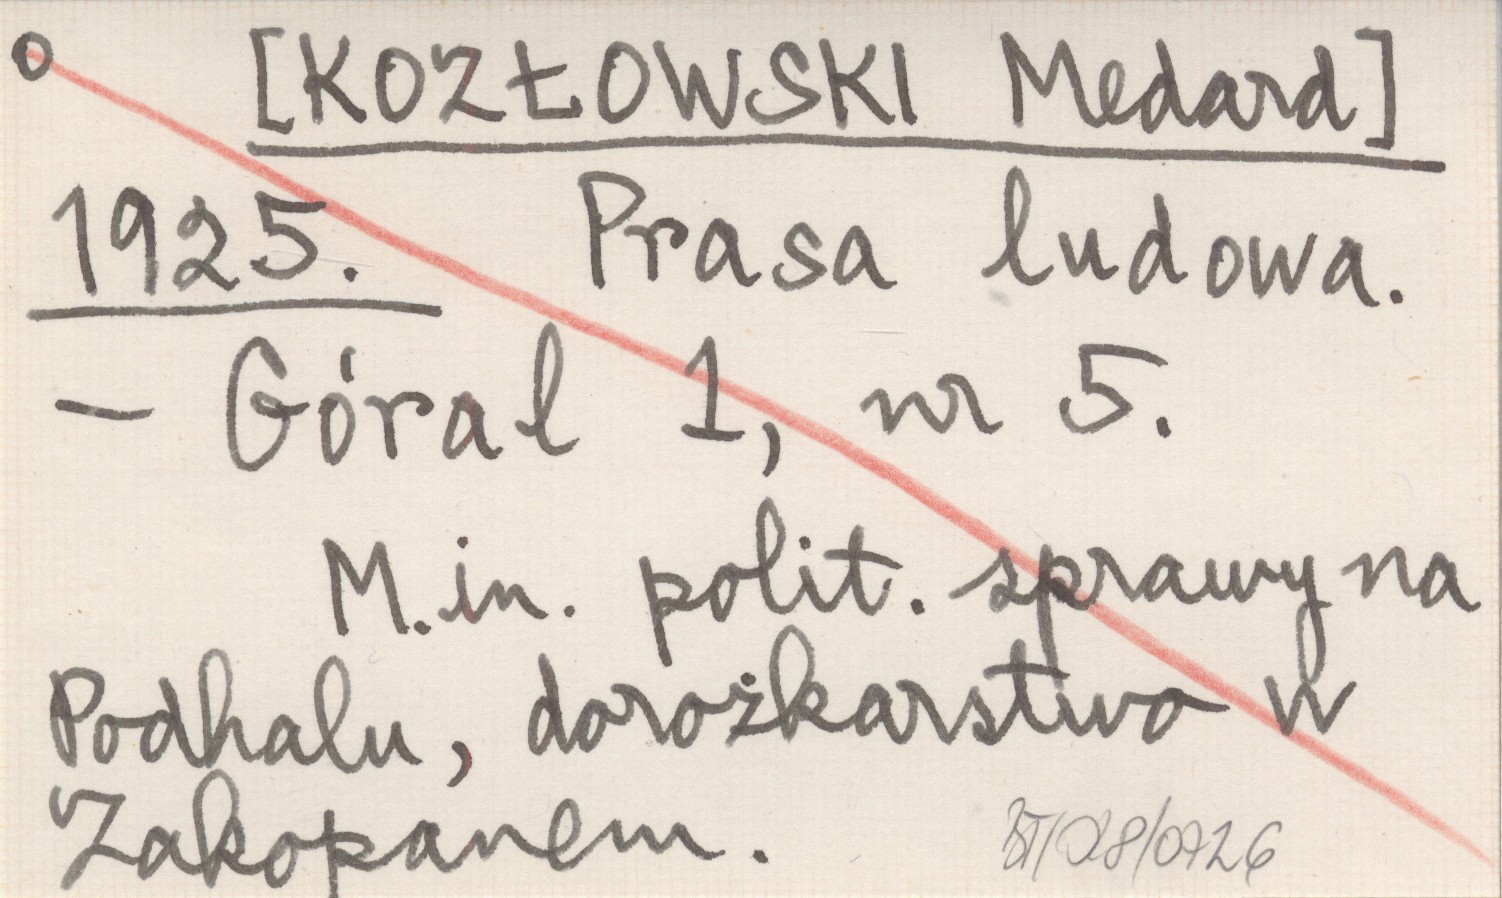 [KOZŁOWSKI Medard]
1925. Prasa ludowa.
– Góral 1, nr 5.
M.in. polit. sprawy na
Podhalu, dorożkarstwo w
Zakopanem.